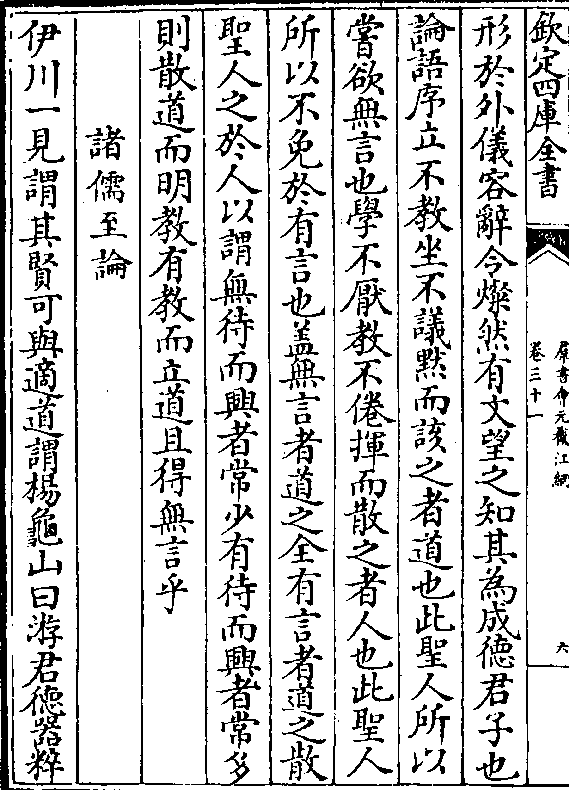 欽定四庫全書
羣書會元截江網
卷三十一
六
形於外儀容辭令燦然有文望之知其為成德君子也
論語序立不教坐不議黙而該之者道也此聖人所以
嘗欲無言也學不厭教不倦揮而散之者人也此聖人
所以不免於有言也盖無言者道之全有言者道之散
聖人之於人以謂無待而興者常少有待而興者常多
則散道而明教有教而立道且得無言乎
諸儒至論
伊川一見謂其賢可與適道謂楊龜山曰游君德器粹